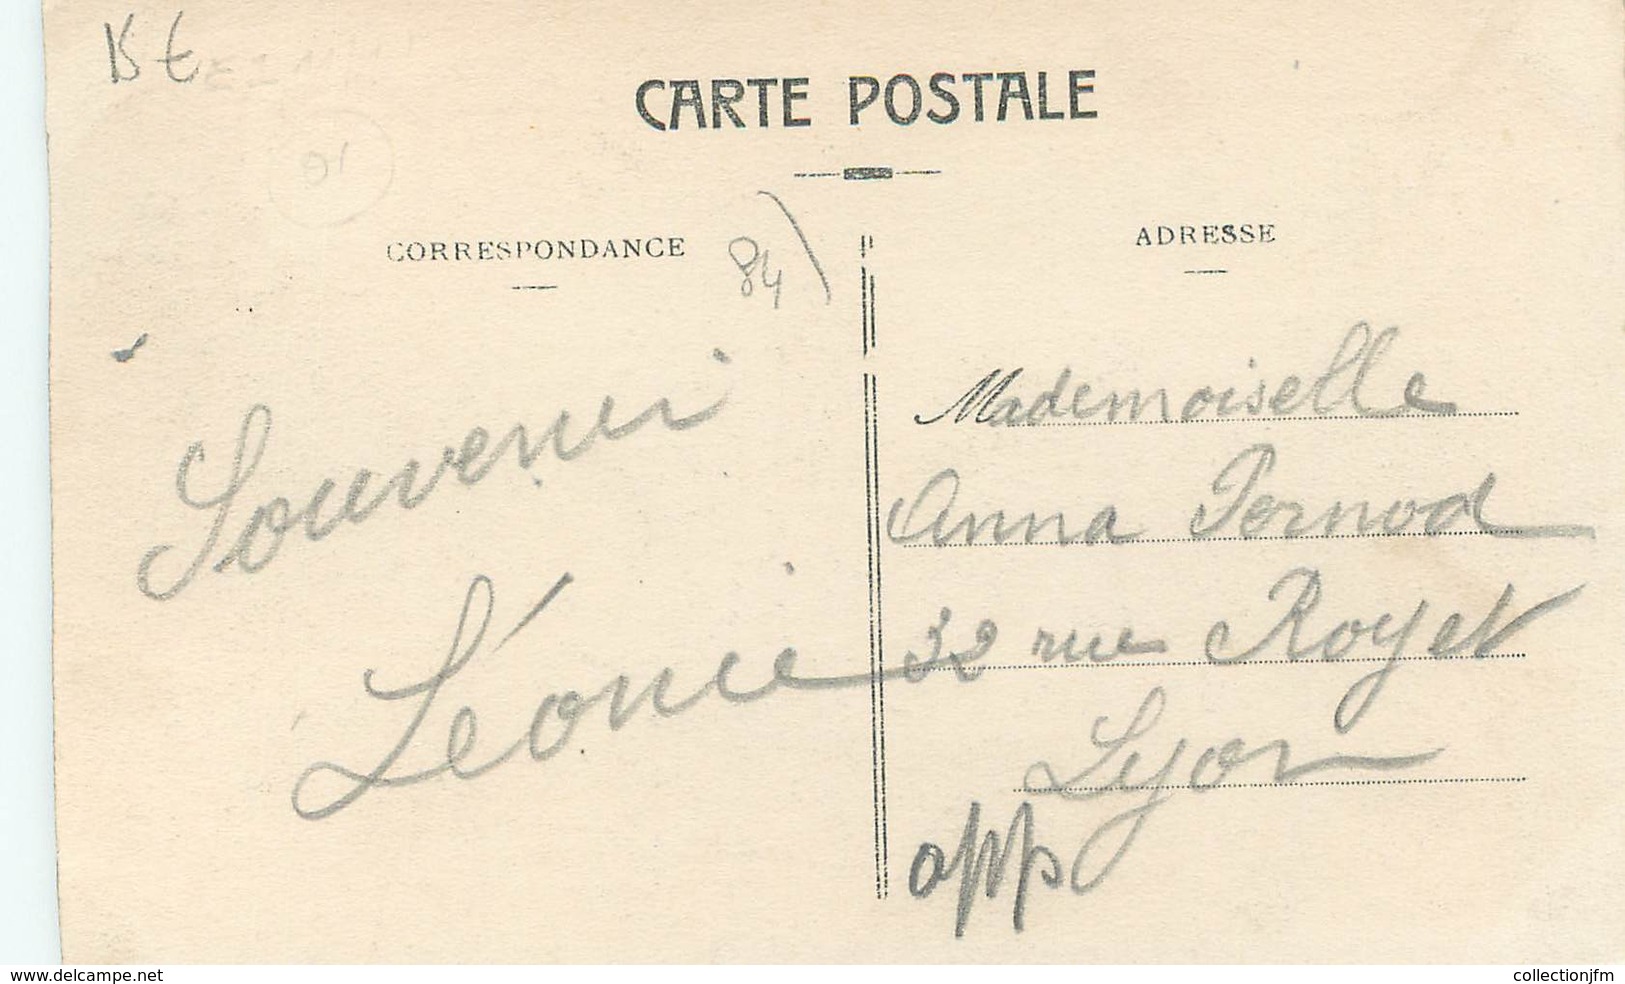 CARTE POSTALE
CORRESPONDANCE
84
ADRESSE
Souvenir
Léonie
Mademoiselle
Anna Pernod
32 rue Royet
Lyon
www.delcampe.net
collectionjfm